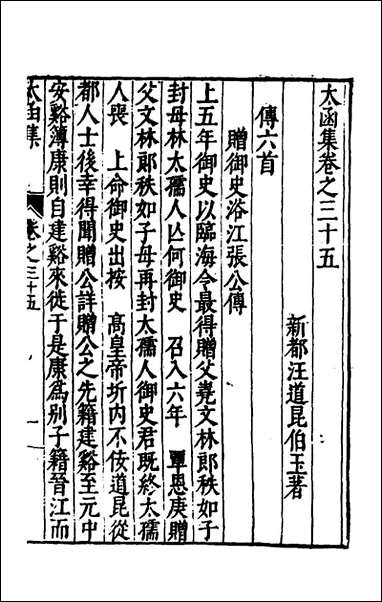 太函集卷之三十五
新都汪道昆伯玉著
傳六首
贈御史洛江張公傳
上五年御史以臨海令最得贈父堯文林郎秩如子
封母林太孺人亡何御史　召入六年　覃恩庚贈
父文林郎秩如子母再封太孺人御史君既終太孺
人喪　上命御史出按　高皇帝圻内不佞道昆從
都人士後幸得聞贈公詳贈公之先籍建谿至元中
安谿簿康則自建谿來徙于是康爲别子籍晉江而
太函集
卷之三十五
一